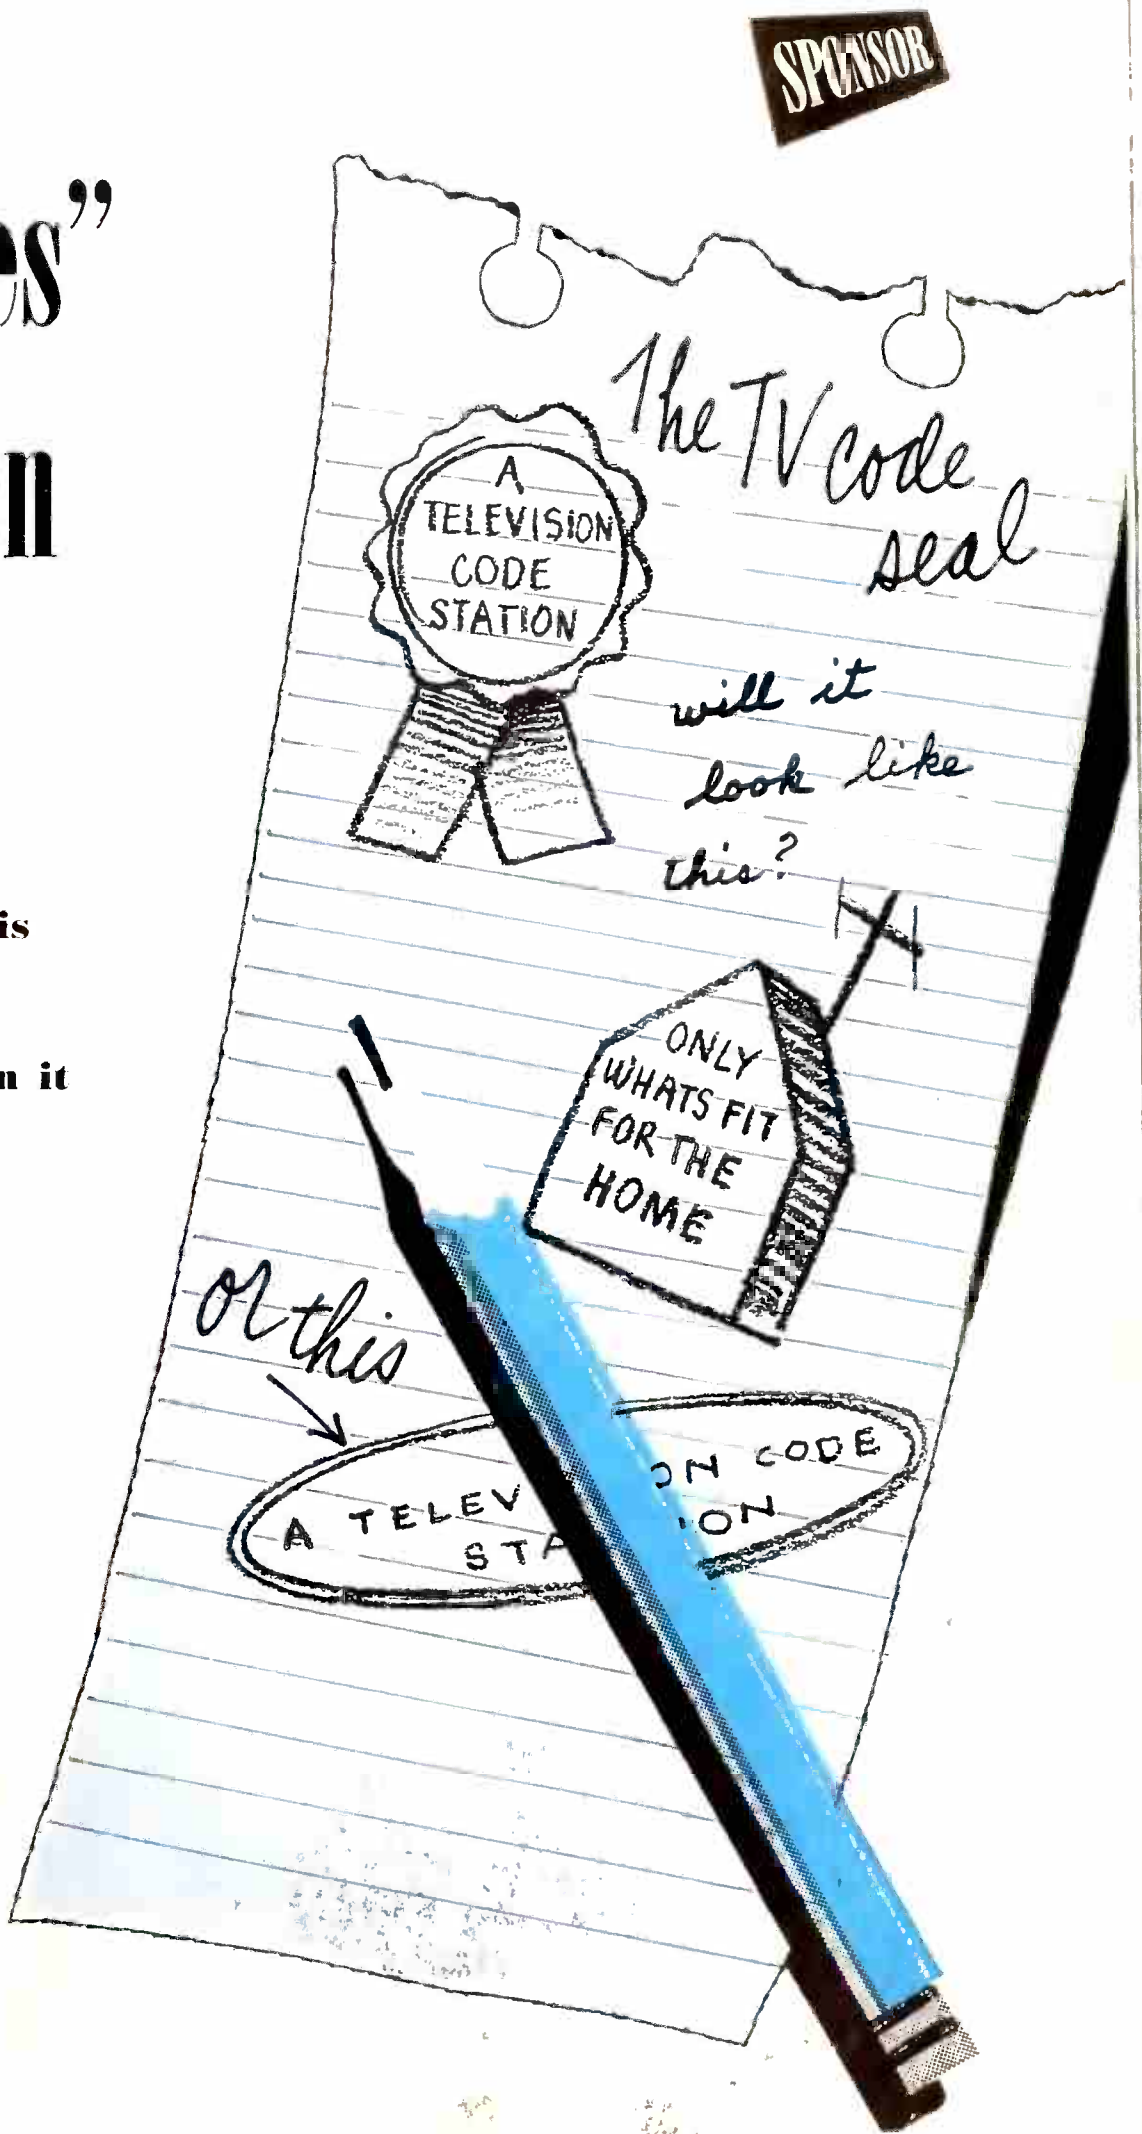 SPONSOR
es”
n
is
n it
The TV code
seal
A
TELEVISION
CODE
STATION
will it
look like
this?
ONLY
WHATS FIT
FOR THE
HOME
or this
A TELEV ON CODE
STA ION